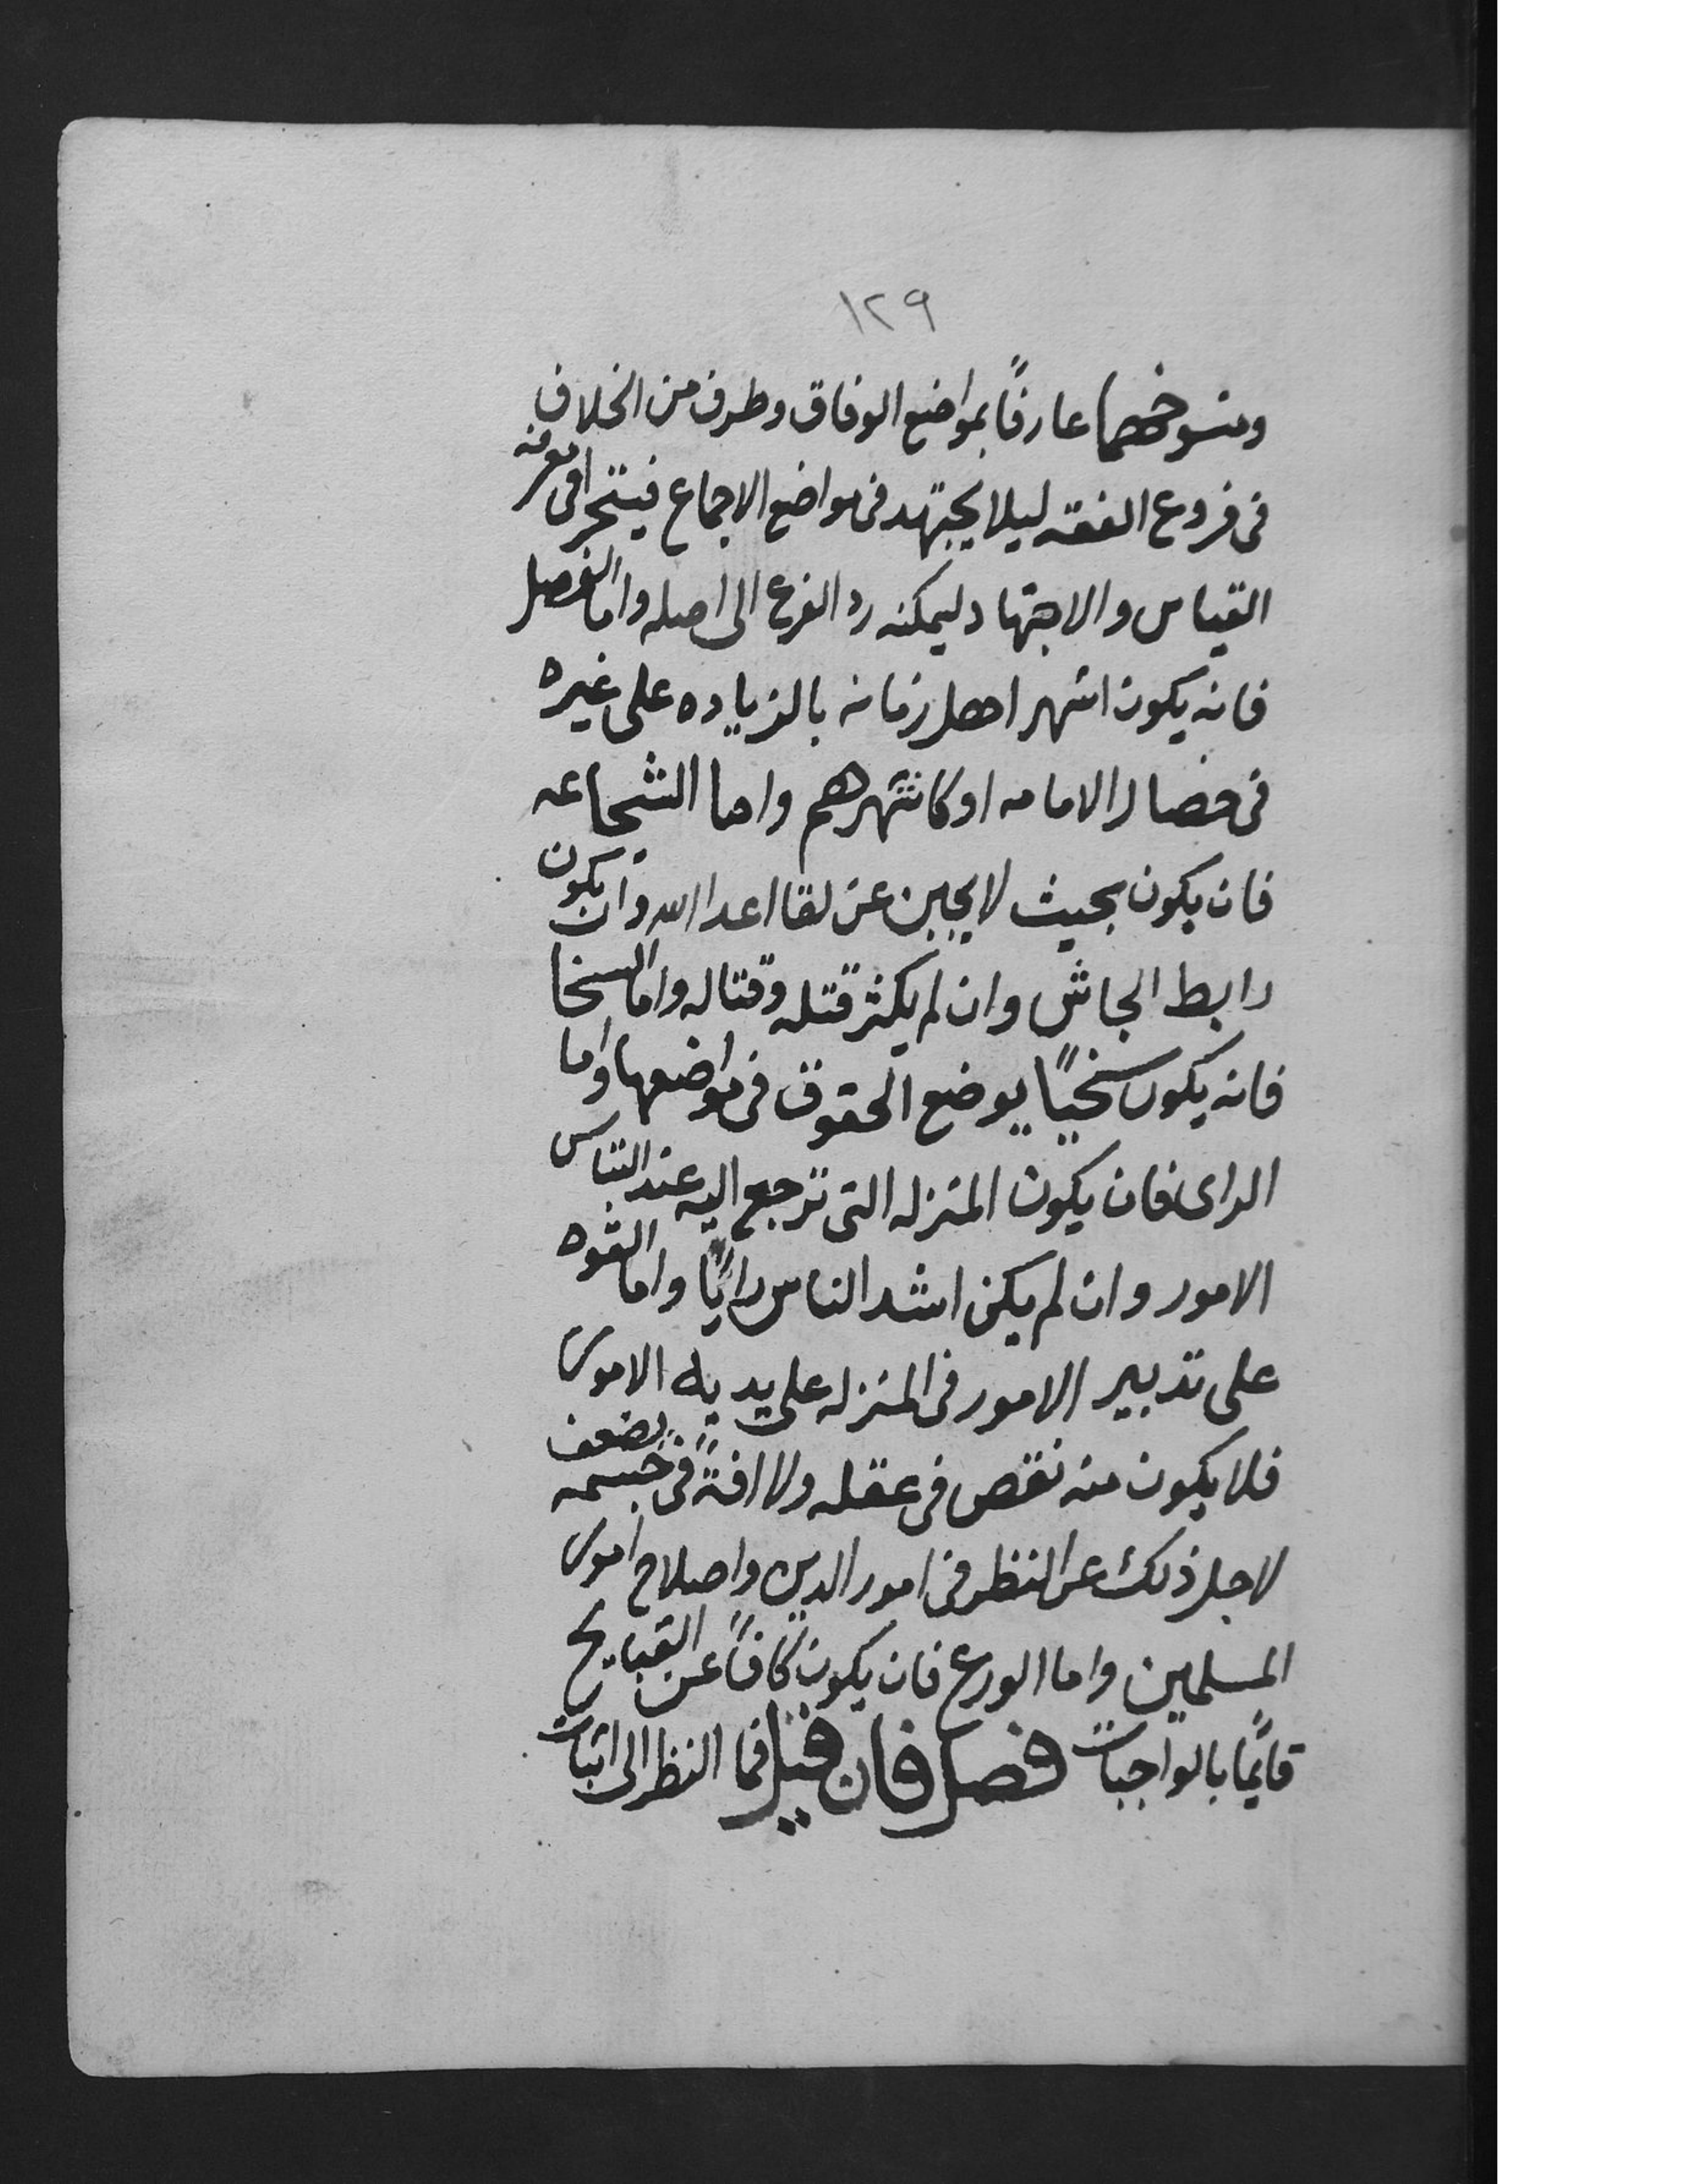 ١٢٩
ومنسوخهما عارفًا بمواضع الوفاق وطرف من الخلاف
فى فروع الفقه ليلا يجتهد فى مواضع الاجماع فيتحرا فى معرفه
القياس والاجتهاد ليمكنه رد الفرع الى اصله واما الفضل
فانه يكون اشهر اهل زمانه بالزياده على غيره
فى خصال الامامه او كاشهرهم واما الشجاعه
فان يكون بحيث لا يجبن عن لقا اعدا الله وان يكون
رابط الجاش وان لم يكثر قتله وقتاله واما السخا
فانه يكون سخيًا يوضع الحقوق فى مواضعها واما
الراى فان يكون المنزله التى ترجع اليه عند التباس
الامور وان لم يكن اشد الناس رايًا واما القوه
على تدبير الامور فى المنزله على يديه الامور
فلا يكون منه نقص فى عقله ولا افةً فى جسمه يضعف
لاجل ذلك عن النظر فى امور الدين واصلاح امور
المسلمين واما الورع فان يكون كافًا عن القبايح
قايمًا بالواجبات فصل فان قيل فما النظر الى اثبات